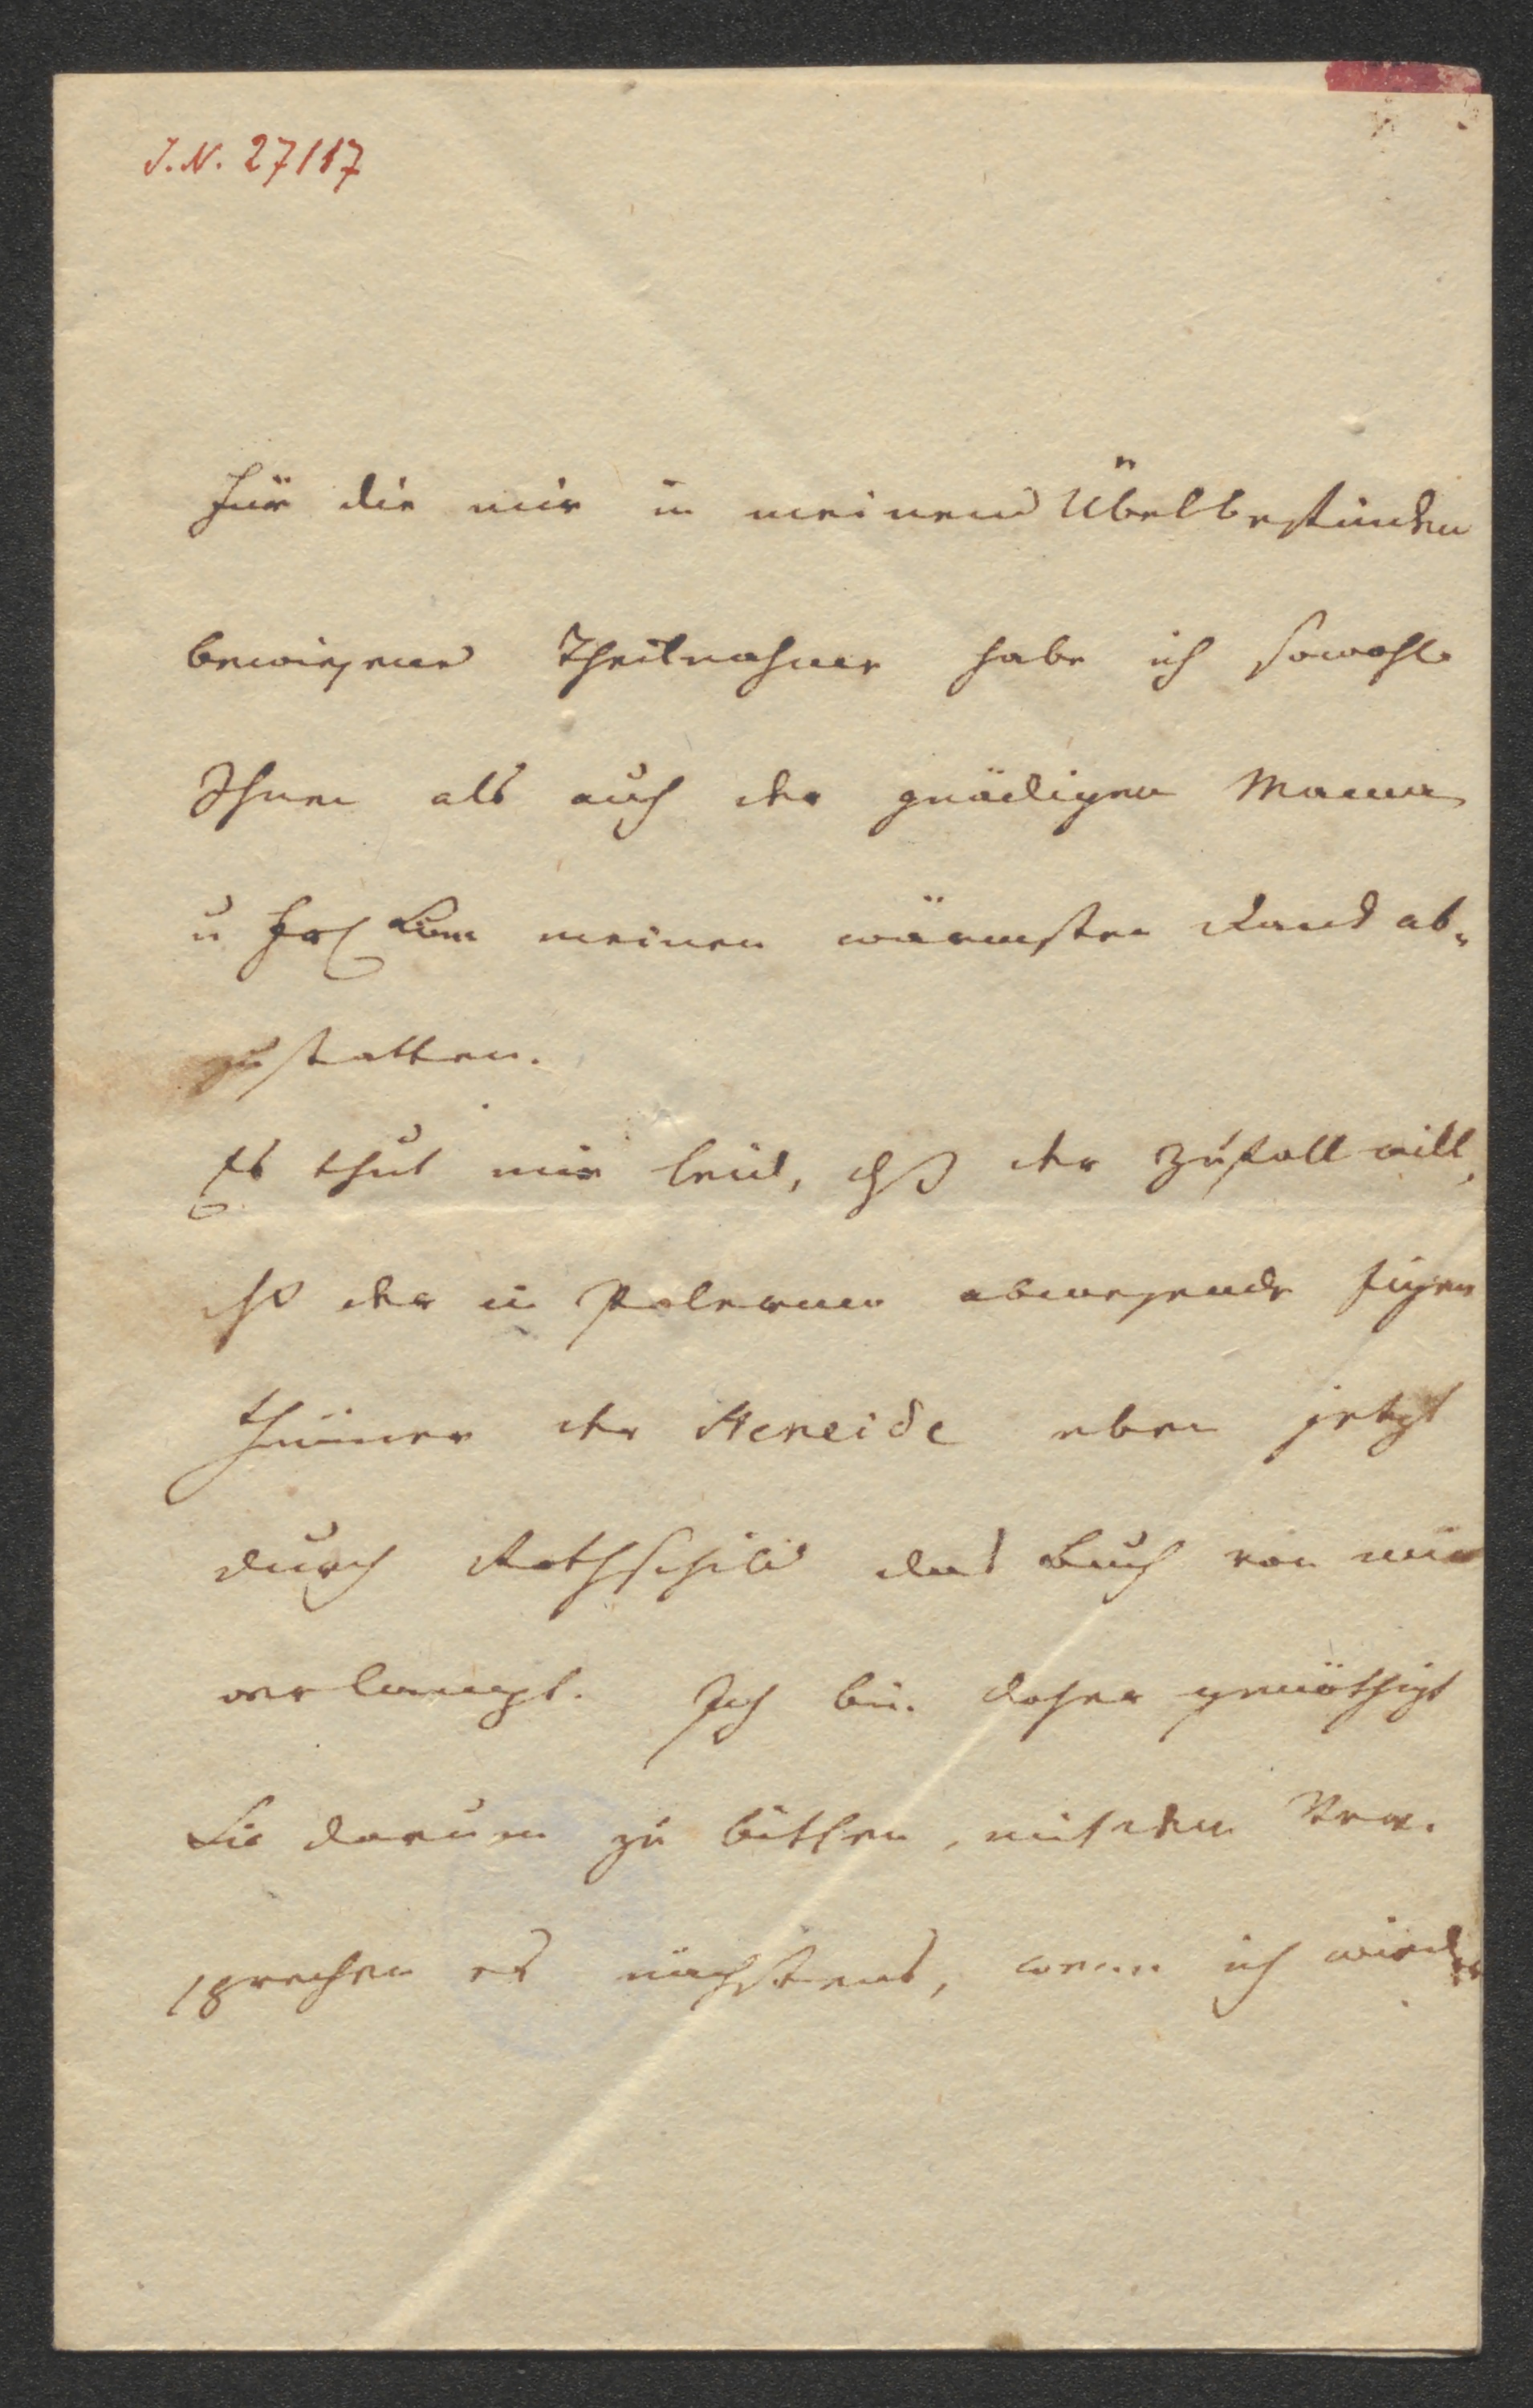 J.N. 27117
Für die mir in meinem Übelbefinden
bewiesene Theilnahme habe ich sowohl
Ihnen als auch der gnädigen Mama
u Frl meinen wärmsten Dank ab-
zustatten.
Es thut mir leid, dß der Zufall will,
dß der in Palermo abwesende Eigen
thümer der Aeneide eben jetzt
durch Rothschild das Buch von mir
verlangt. Ich bin daher genöthigt
Sie darum zu bitten, mit dem Ver-
sprechen es nächstens, wenn ich wieder